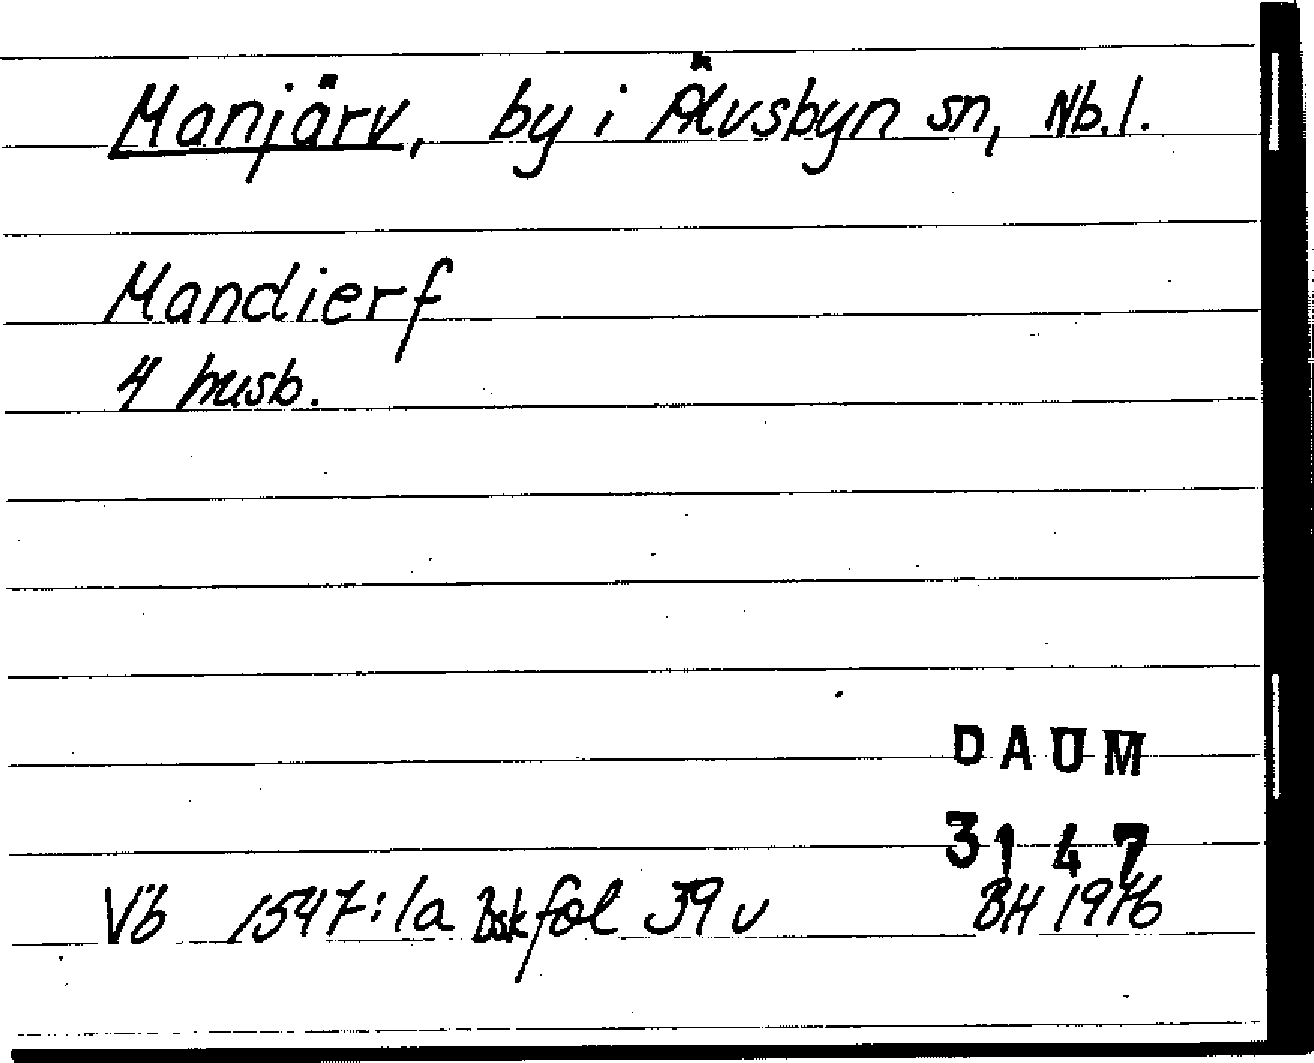 Manjärv, by i Älvsbyn sn, Nb.l.
Mandierf
4 husb.
DAUM
3147
Vb 1547:1a Bskfol 39 v BH 1976